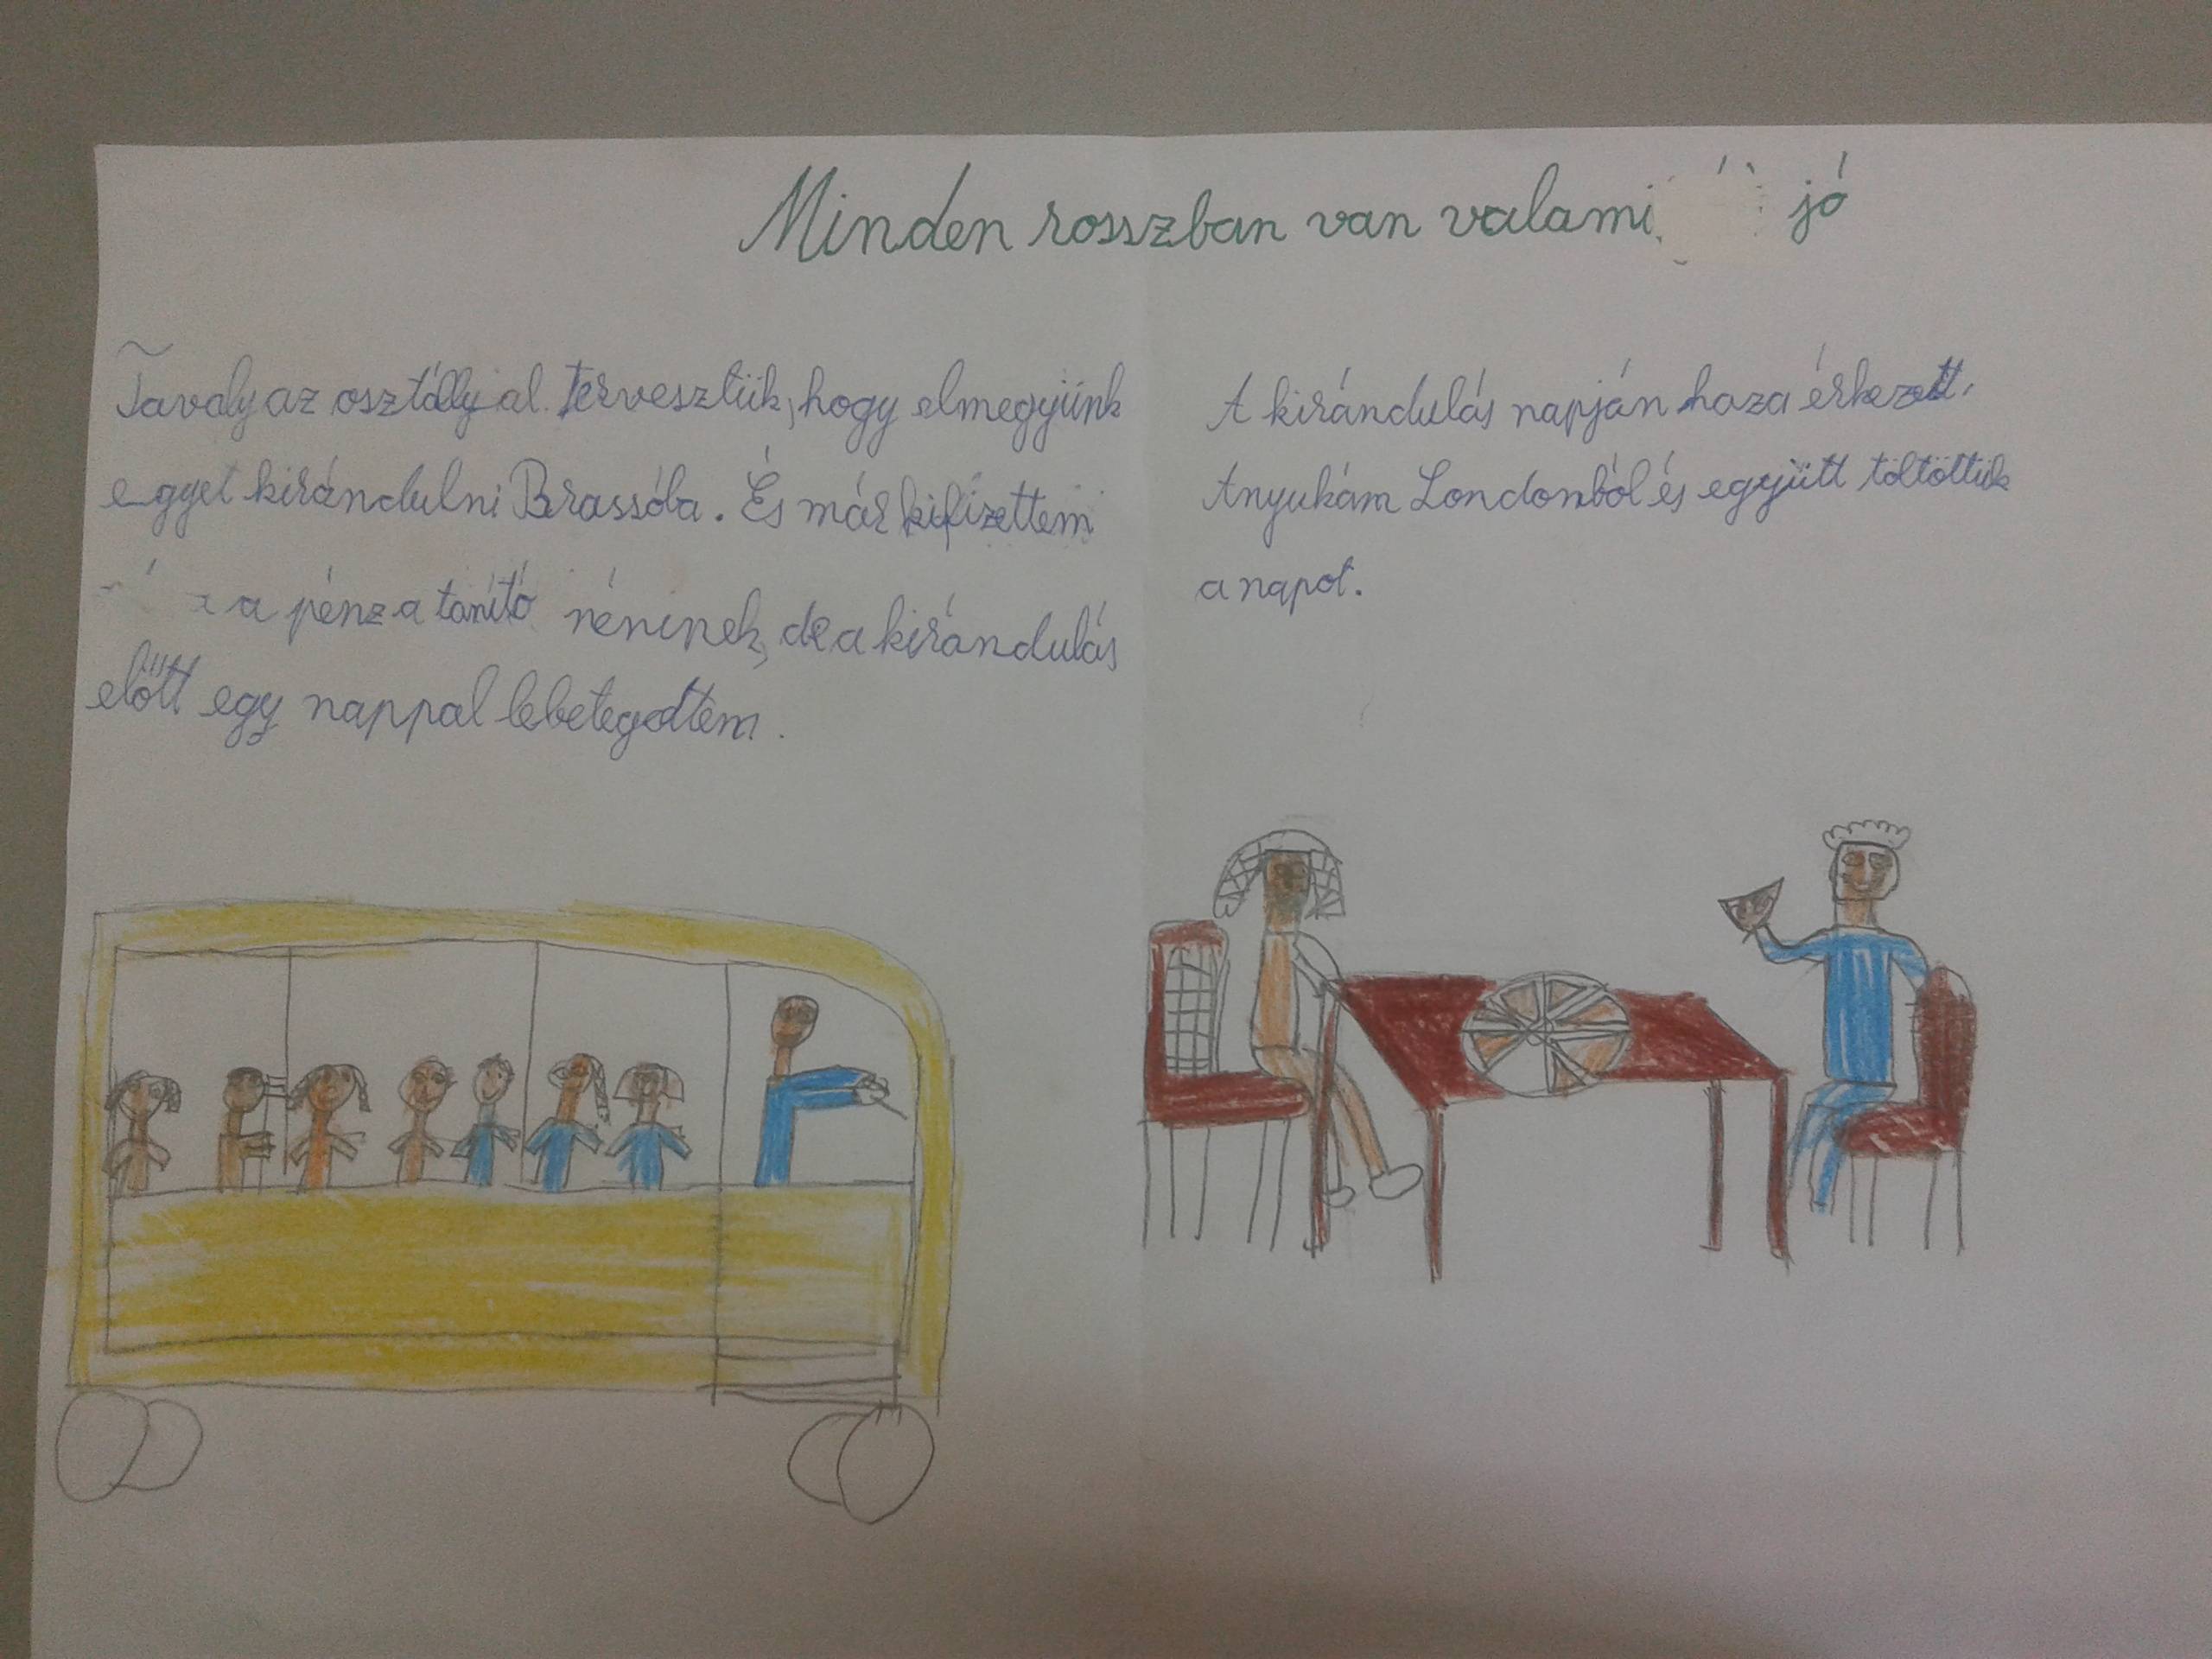 Minden rosszban van valami jó
Tavaly az osztállyal terveztük, hogy elmegyünk
egyet kirándulni Brassóba. És már kifizettem
a pénz a tanító néninek, de a kirándulás
előtt egy nappal lebetegedtem.
A kirándulás napján haza érkezett
Anyukám Londonból és együtt töltöttük
a napot.